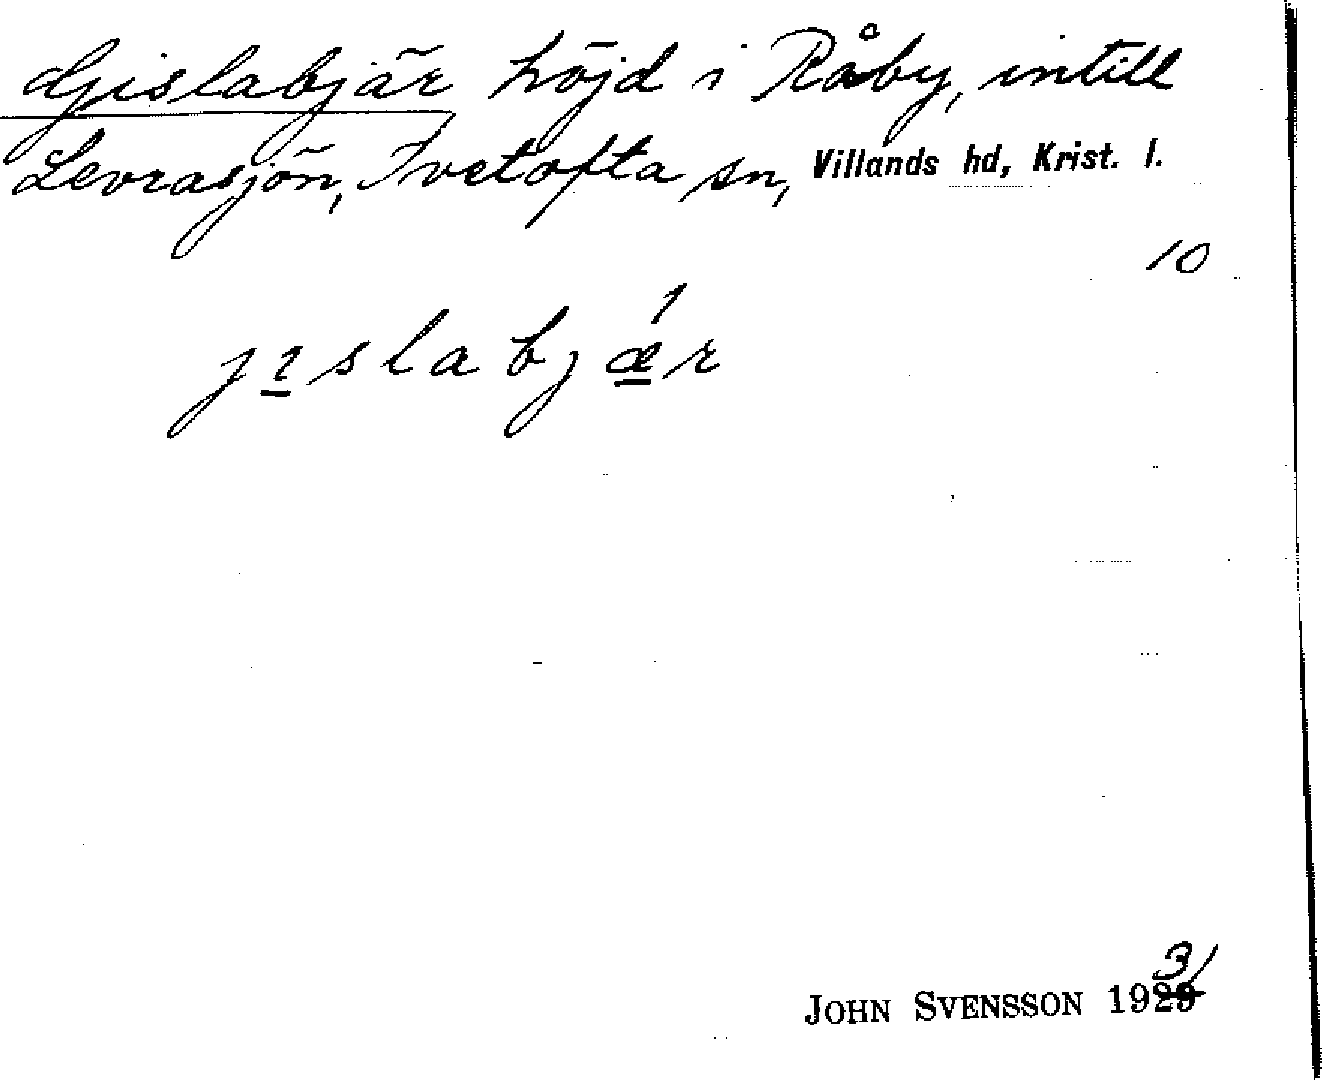 Gislabjär höjd i Råby, intill
Levrasjön, Ivetofta sn, Villands hd, Krist. l.
10
jıslabjǽr
JOHN SVENSSON 1931